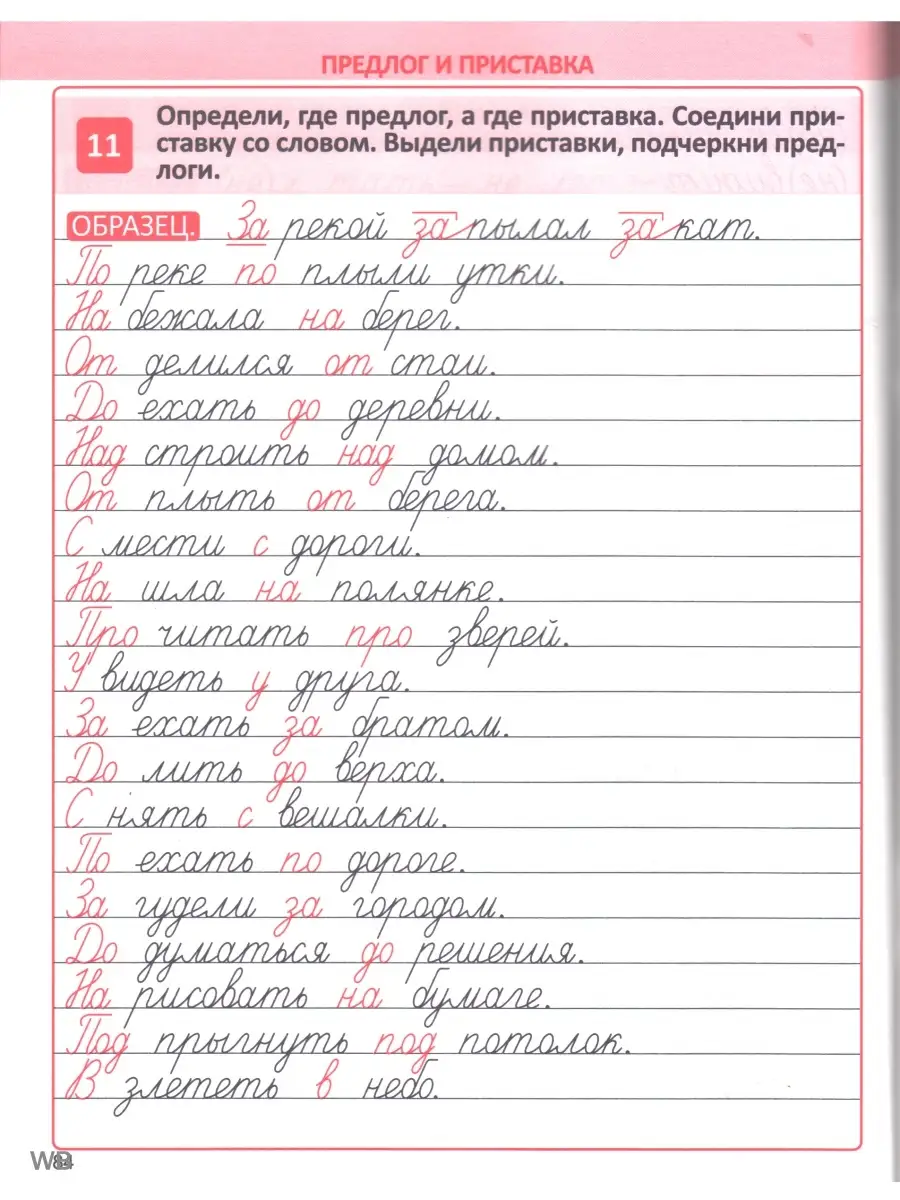 ПРЕДЛОГ И ПРИСТАВКА
11
Определи, где предлог, а где приставка. Соедини при-
ставку со словом. Выдели приставки, подчеркни пред-
логи.
ОБРАЗЕЦ. За рекой запылал закат.
По реке по плыли утки.
На бежала на берег.
От делился от стаи.
До ехать до деревни.
Над строить над домом.
От плыть от берега.
С мести с дороги.
На шла на полянке.
Про читать про зверей.
У видеть у друга.
За ехать за братом.
До лить до верха.
С нять с вешалки.
По ехать по дороге.
За гудели за городом.
До думаться до решения.
На рисовать на бумаге.
Под прыгнуть под потолок.
В злететь в небо.